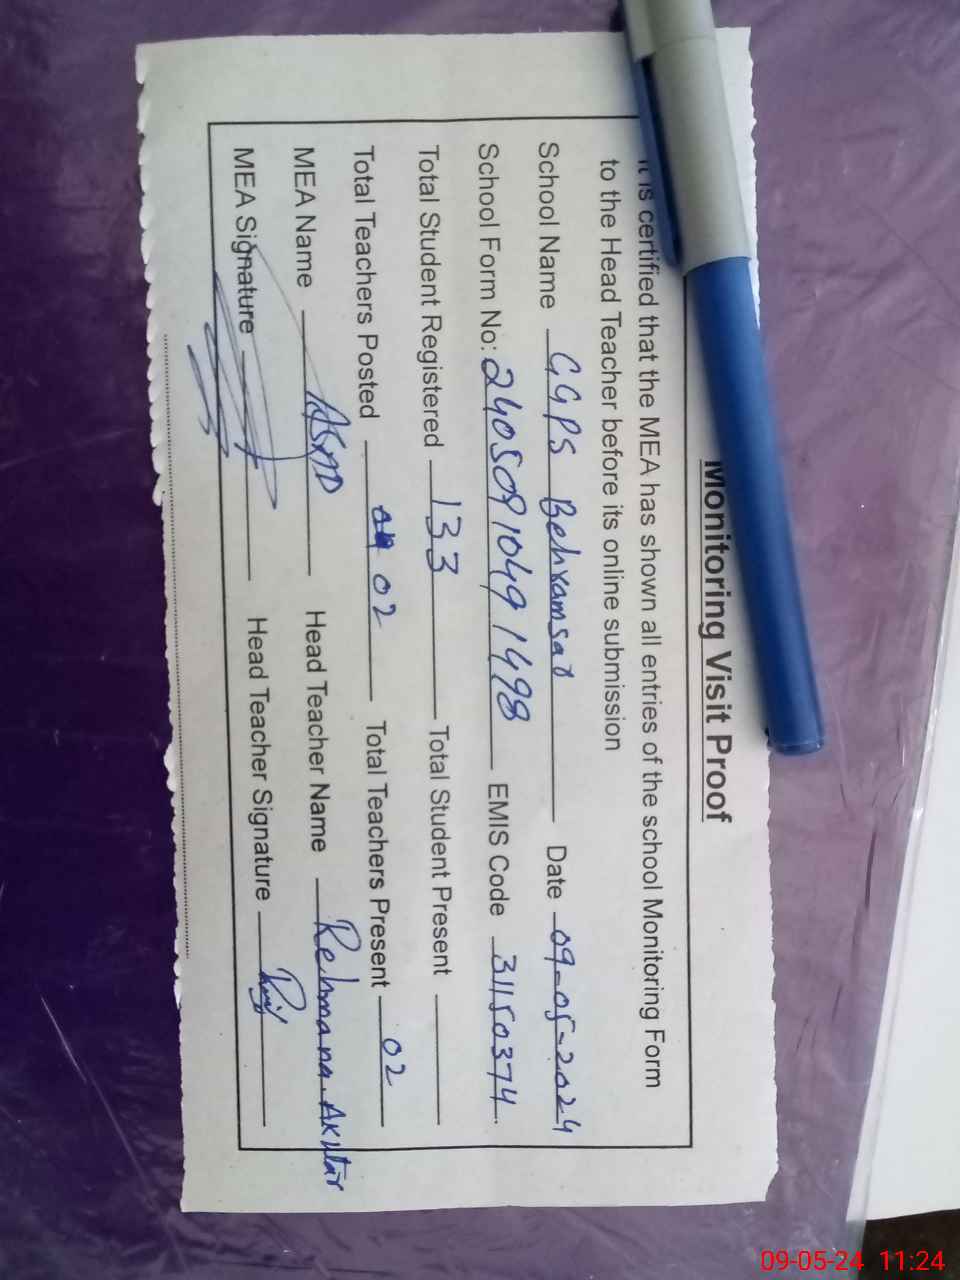 Monitoring Visit Proof
It is certified that the MEA has shown all entries of the school Monitoring Form
to the Head Teacher before its online submission
School Name GGPS Behramsar Date 09-05-2024
School Form No: 2405091049 1498 EMIS Code 31150374
Total Student Registered 133 Total Student Present
Total Teachers Posted 02 Total Teachers Present 02
MEA Name Head Teacher Name Rehmana Akhtar
MEA Signature Head Teacher Signature
09-05-24 11:24